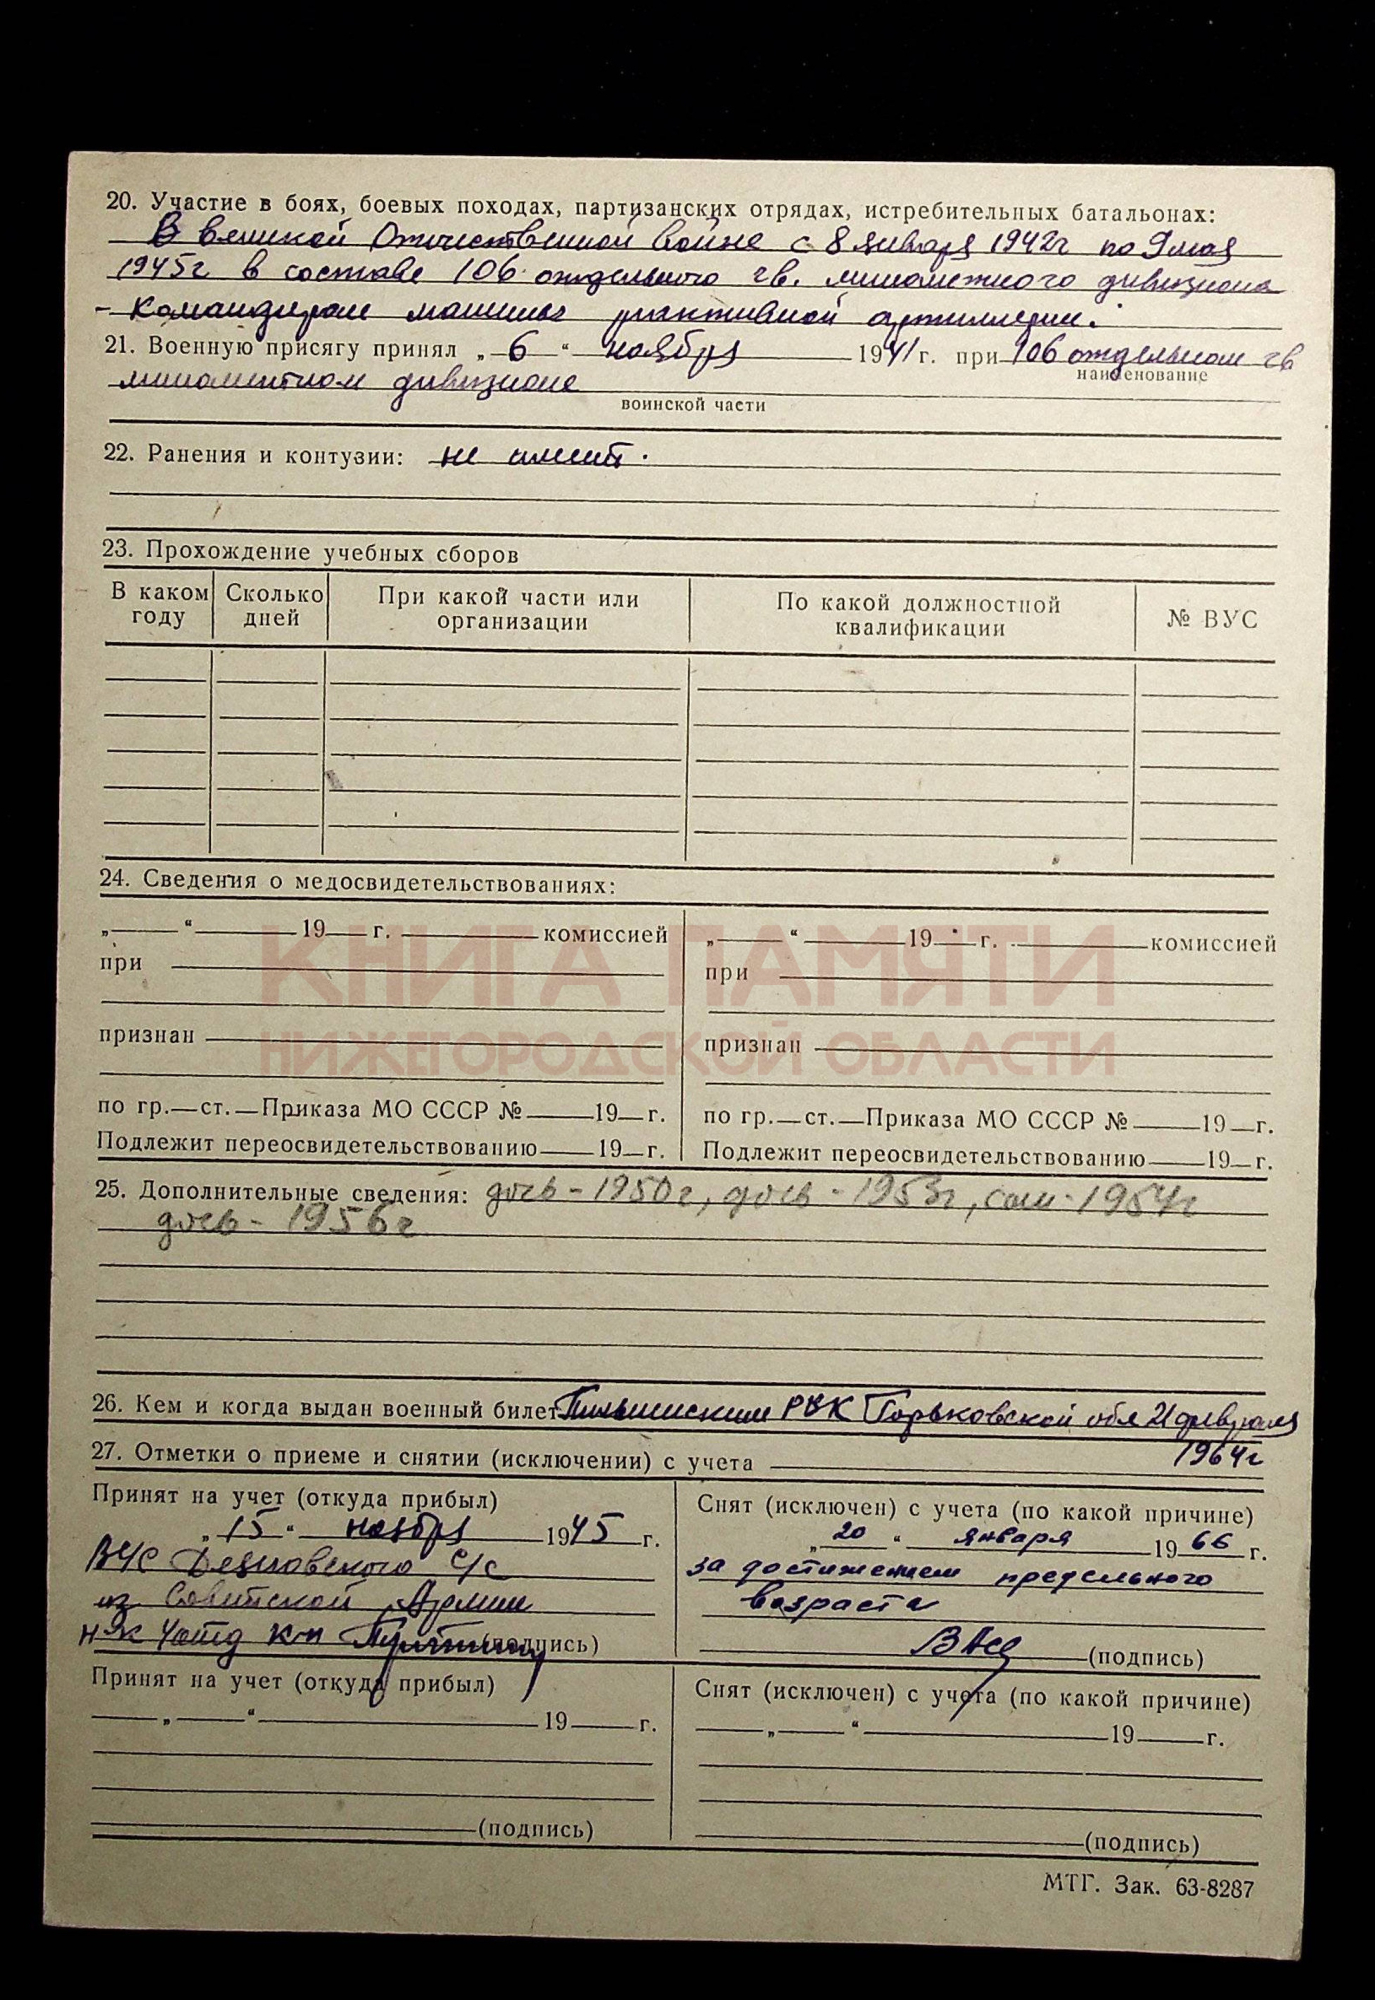 20. Участие в боях, боевых походах, партизанских отрядах, истребительных батальонах:
В великой Отечественной войне с 8 января 1942г по 9 мая
1945г в составе 106 отдельного гв. минометного дивизиона
- Командиром машины реактивной артиллерии.
21. Военную присягу принял „ 6 “ ноября 1941 г. при 106 отдельном гв
наименование
минометном дивизионе
воинской части
22. Ранения и контузии: не имеет.
23. Прохождение учебных сборов
В каком году Сколько дней При какой части или организации По какой должностной квалификации № ВУС
24. Сведения о медосвидетельствованиях:
„ “ 19 г. комиссией
при
признан
по гр. ст. Приказа МО СССР № 19 г.
Подлежит переосвидетельствованию 19 г.
„ “ 19 г. комиссией
при
признан
по гр. ст. Приказа МО СССР № 19 г.
Подлежит переосвидетельствованию 19 г.
КНИГА ПАМЯТИ
НИЖЕГОРОДСКОЙ ОБЛАСТИ
25. Дополнительные сведения: дочь - 1950г, дочь - 1953г, сын - 1954г
дочь - 1956г
26. Кем и когда выдан военный билет Пильнинским РВК Горьковской обл 21 февраля
1964г
27. Отметки о приеме и снятии (исключении) с учета
Принят на учет (откуда прибыл)
„ 15 “ ноября 1945 г.
ВУС с/с
из Советской Армии
(подпись)
Снят (исключен) с учета (по какой причине)
„ 20 “ января 1966 г.
за достижением предельного
возраста
(подпись)
Принят на учет (откуда прибыл)
„ “ 19 г.
(подпись)
Снят (исключен) с учета (по какой причине)
„ “ 19 г.
(подпись)
МТГ. Зак. 63-8287